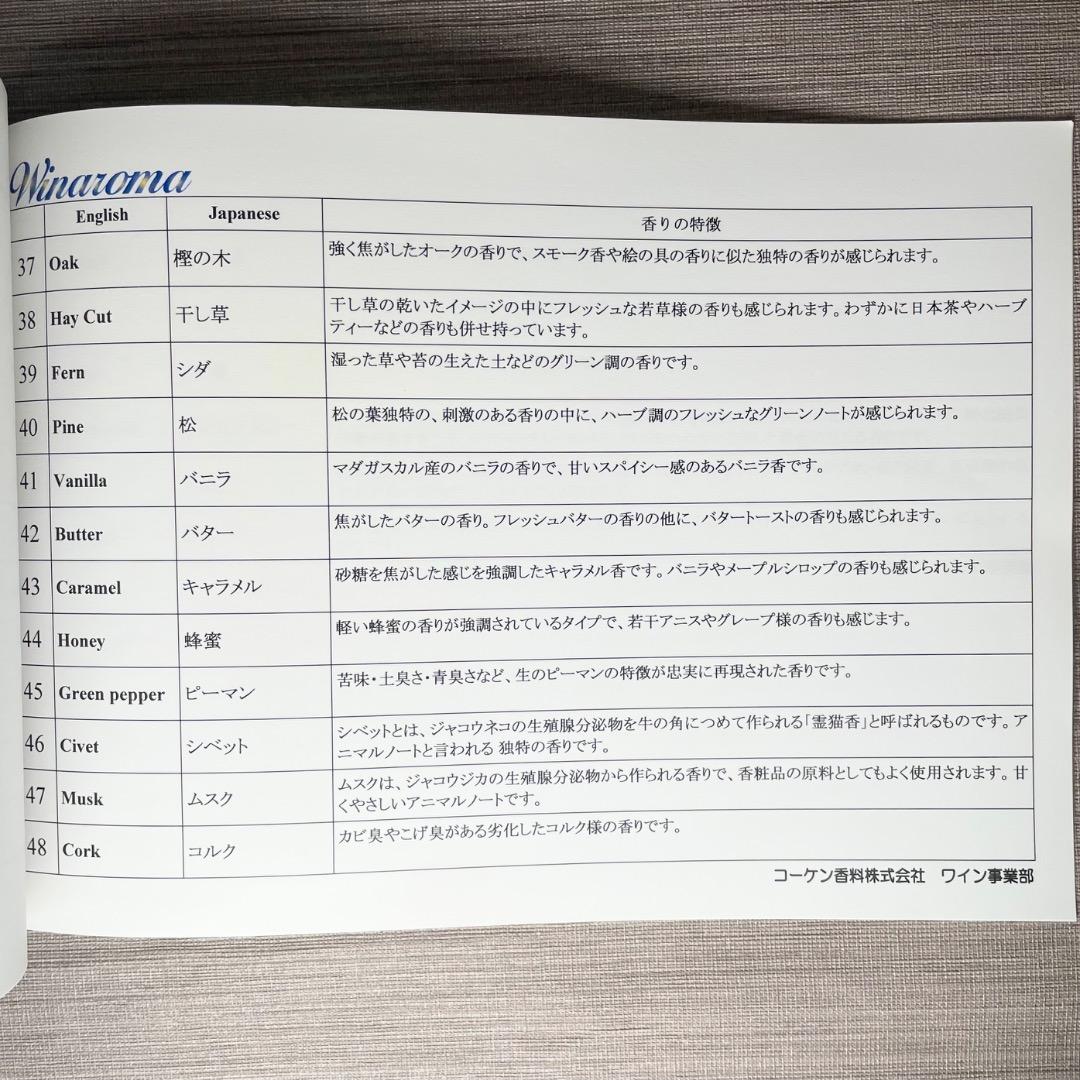 Winaroma
English Japanese 香りの特徴
37 Oak 樫の木 強く焦がしたオークの香りで、スモーク香や絵の具の香りに似た独特の香りが感じられます。
38 Hay Cut 干し草 干し草の乾いたイメージの中にフレッシュな若草様の香りも感じられます。わずかに日本茶やハーブ
ティーなどの香りも併せ持っています。
39 Fern シダ 湿った草や苔の生えた土などのグリーン調の香りです。
40 Pine 松 松の葉独特の、刺激のある香りの中に、ハーブ調のフレッシュなグリーンノートが感じられます。
41 Vanilla バニラ マダガスカル産のバニラの香りで、甘いスパイシー感のあるバニラ香です。
42 Butter バター 焦がしたバターの香り。フレッシュバターの香りの他に、バタートーストの香りも感じられます。
43 Caramel キャラメル 砂糖を焦がした感じを強調したキャラメル香です。バニラやメープルシロップの香りも感じられます。
44 Honey 蜂蜜 軽い蜂蜜の香りが強調されているタイプで、若干アニスやグレープ様の香りも感じます。
45 Green pepper ピーマン 苦味・土臭さ・青臭さなど、生のピーマンの特徴が忠実に再現された香りです。
46 Civet シベット シベットとは、ジャコウネコの生殖腺分泌物を牛の角につめて作られる「霊猫香」と呼ばれるものです。ア
ニマルノートと言われる 独特の香りです。
47 Musk ムスク ムスクは、ジャコウジカの生殖腺分泌物から作られる香りで、香粧品の原料としてもよく使用されます。甘
くやさしいアニマルノートです。
48 Cork コルク カビ臭やこげ臭がある劣化したコルク様の香りです。
コーケン香料株式会社 ワイン事業部